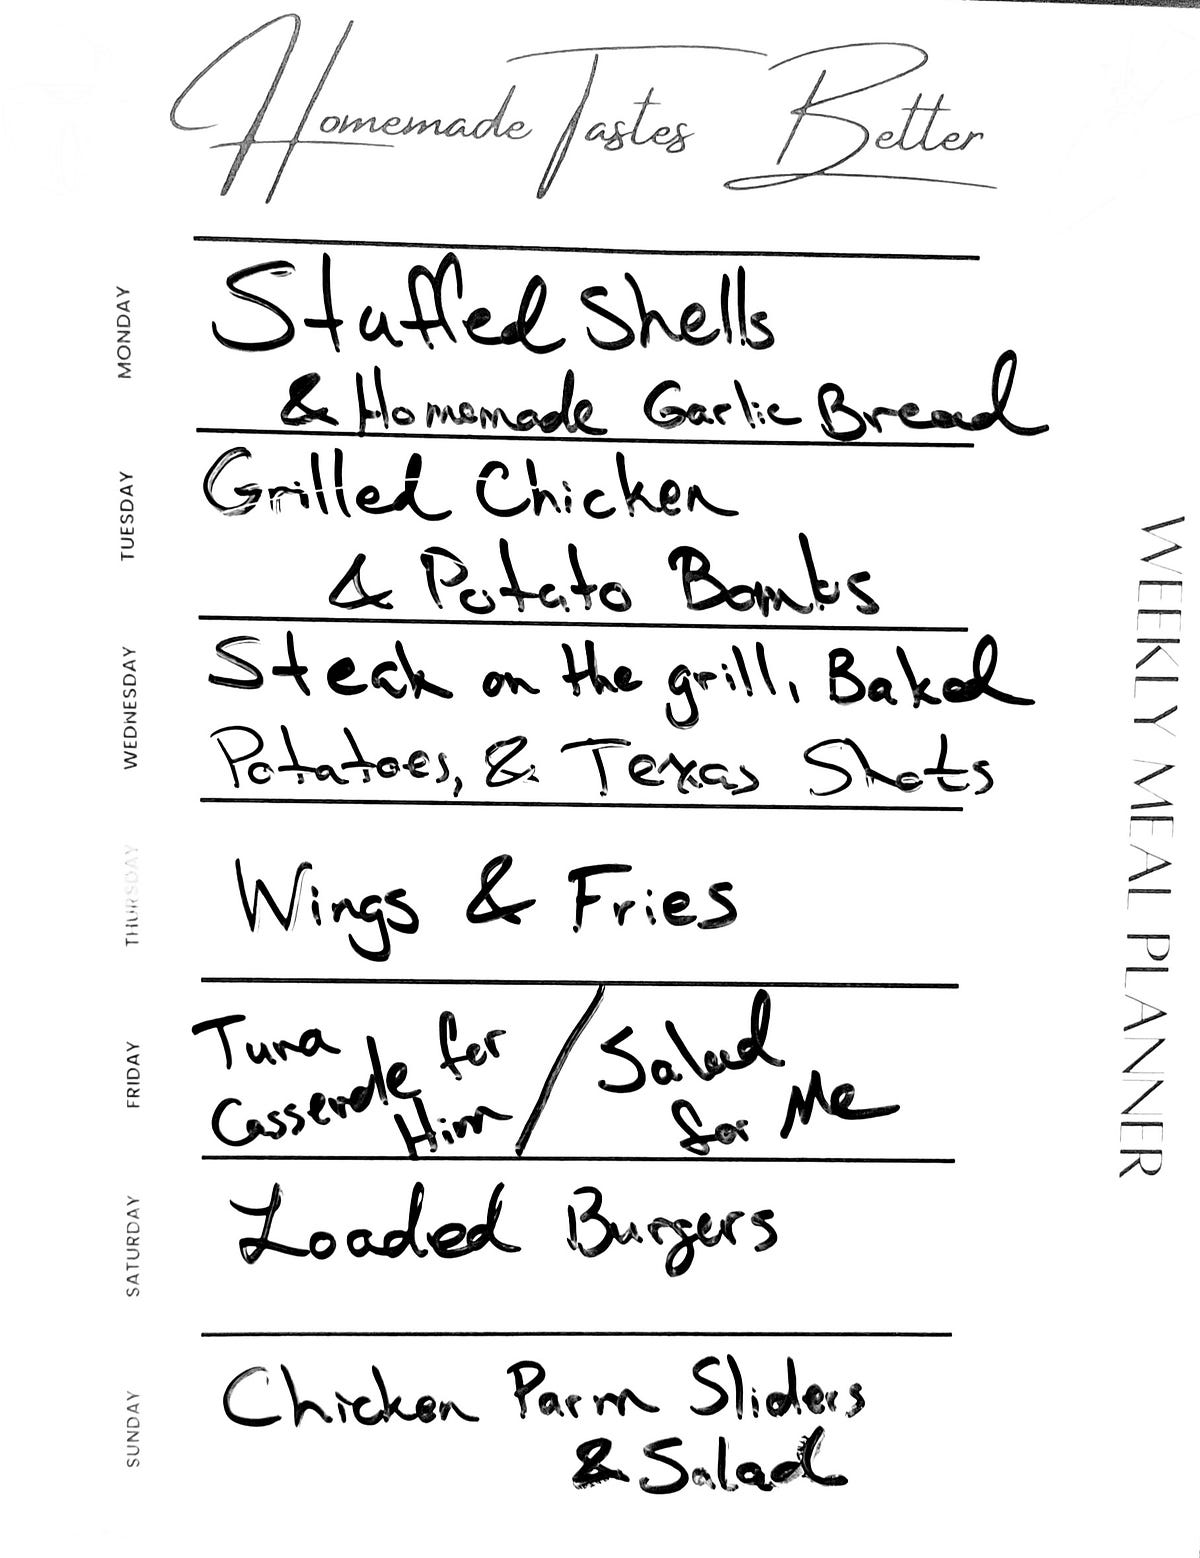 Homemade Tastes Better
MONDAY
Stuffed Shells
& Homemade Garlic Bread
TUESDAY
Grilled Chicken
& Potato Bombs
WEDNESDAY
Steak on the grill, Baked
Potatoes, & Texas Shots
THURSDAY
Wings & Fries
FRIDAY
Tuna
Casserole for
Him / Salad
for Me
SATURDAY
Loaded Burgers
SUNDAY
Chicken Parm Sliders
& Salad
WEEKLY MEAL PLANNER